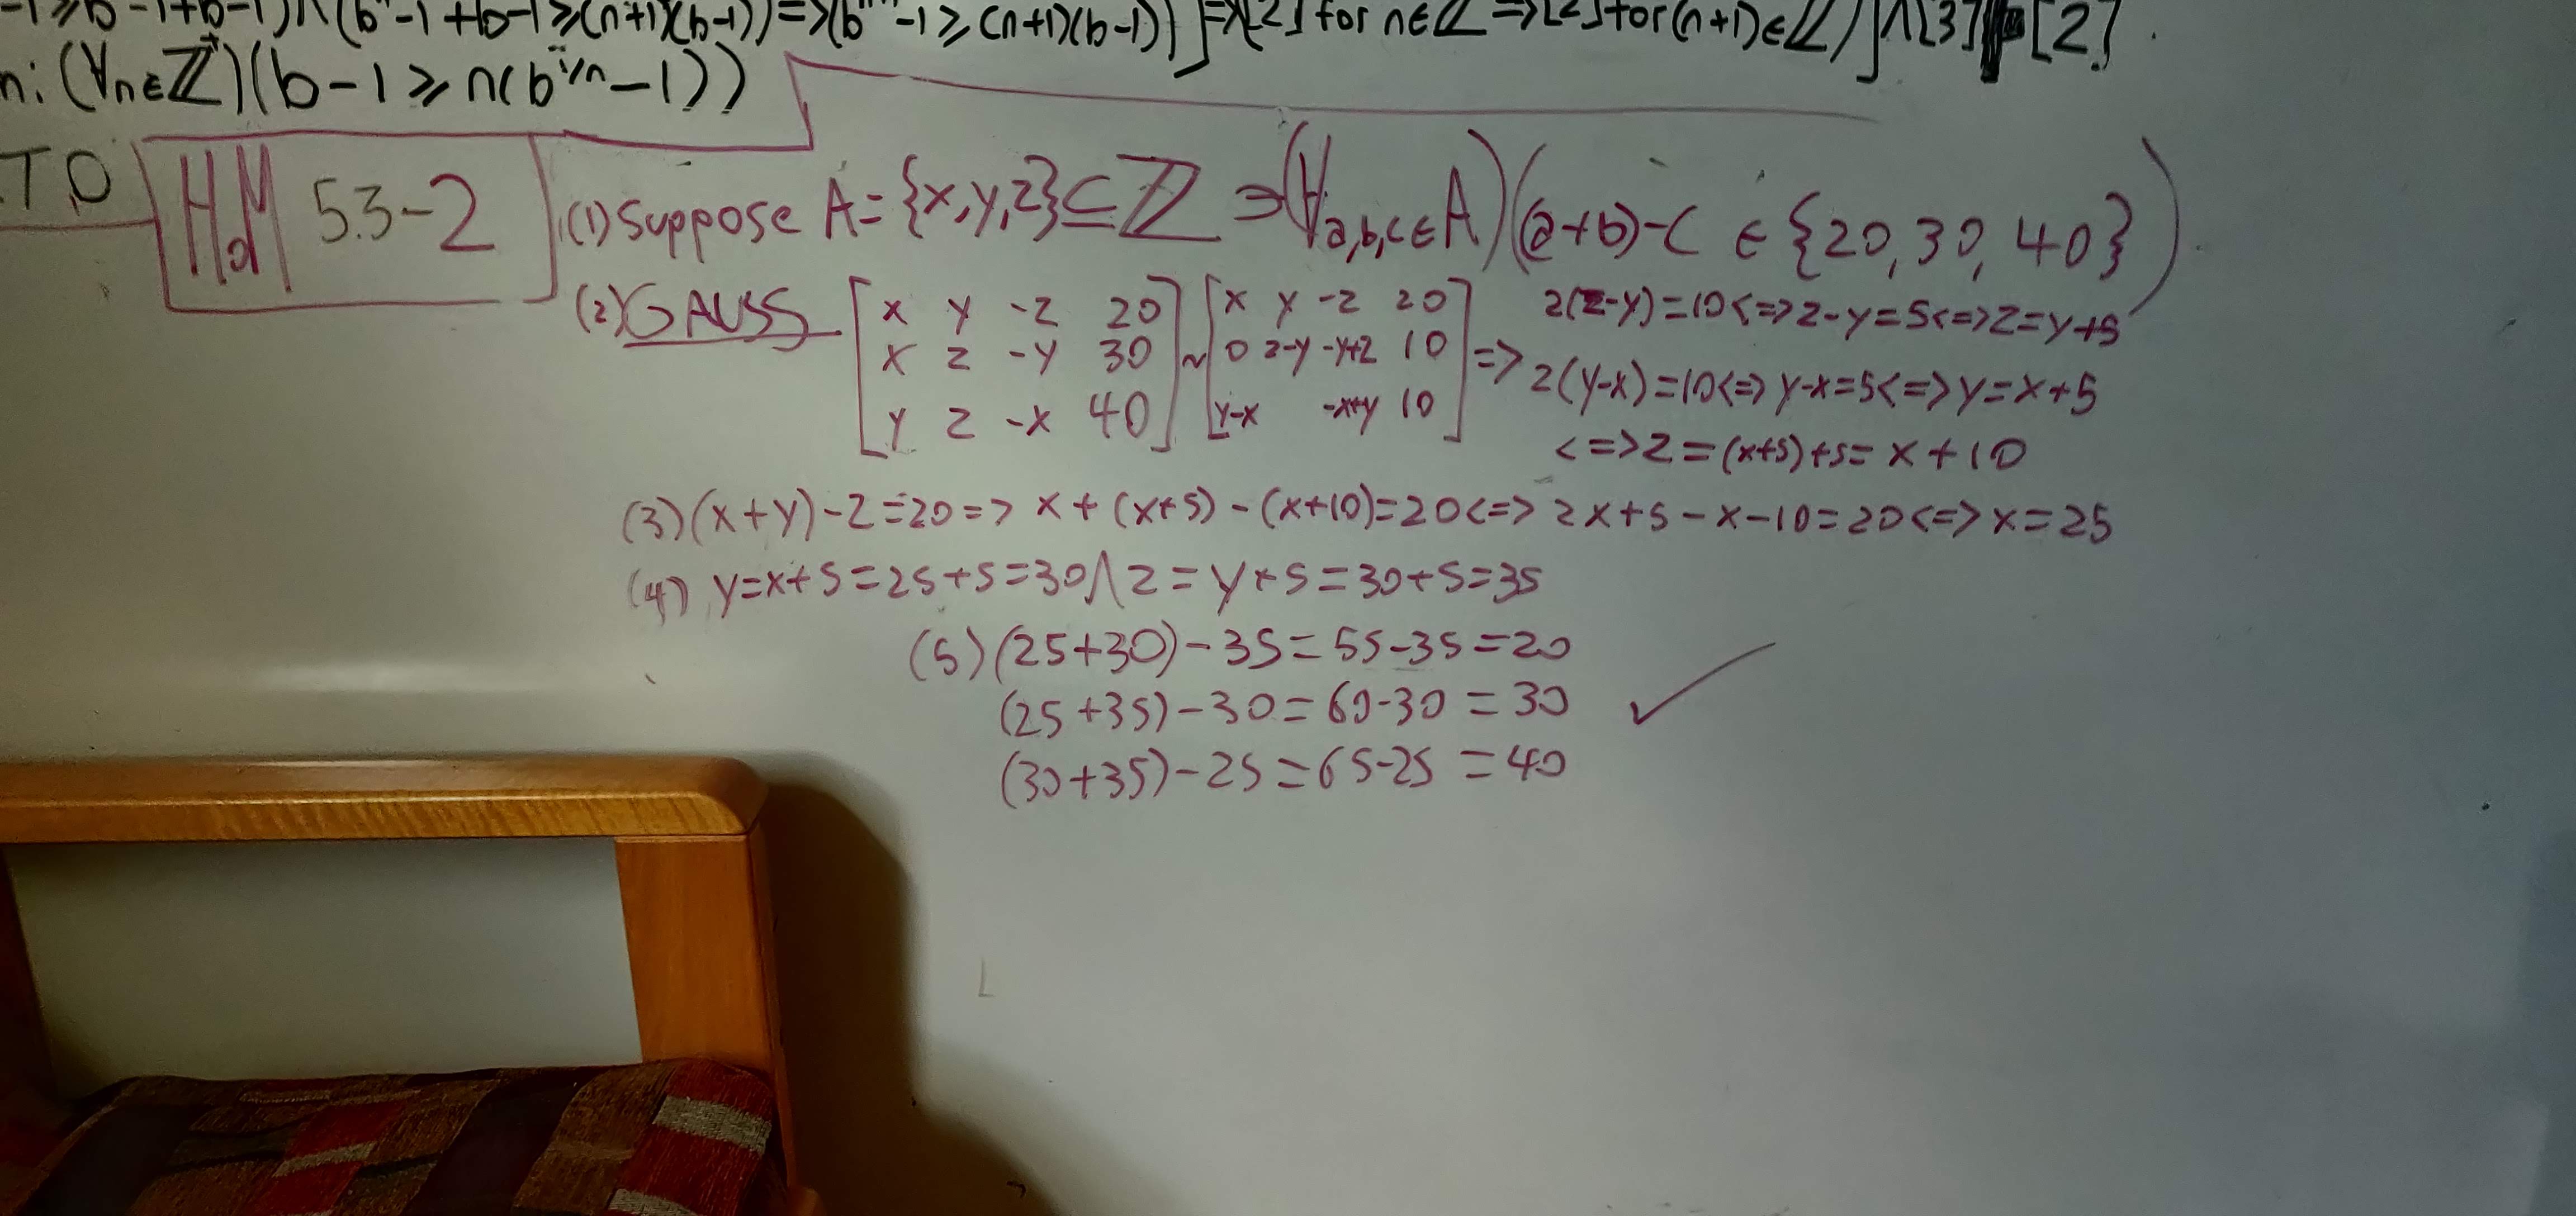 -1≥b-1+b-1)∧(bⁿ-1+b-1≥(n+1)(b-1))=>(bⁿ⁺¹-1≥(n+1)(b-1))]=>[2] for n∈ℤ=>[2] for (n+1)∈ℤ)]∧[3] [2].
n: (∀n∈ℤ⁺)(b-1≥n(b^{1/n}-1))
T.O
HoM 5.3-2
(1) Suppose A={x,y,z}⊆ℤ ∋(∀a,b,c∈A)((a+b)-c ∈{20,30,40})
(2) GAUSS [x y -z 20] ~ [x y -z 20] 2(z-y)=10<=>z-y=5<=>z=y+5
[x z -y 30] [0 z-y -y+z 10] => 2(y-x)=10<=>y-x=5<=>y=x+5
[y z -x 40] [y-x -x+y 10] <=>z=(x+5)+5=x+10
(3) (x+y)-z=20=> x+(x+5)-(x+10)=20<=> 2x+5-x-10=20<=>x=25
(4) y=x+5=25+5=30∧z=y+5=30+5=35
(5) (25+30)-35=55-35=20
(25+35)-30=60-30=30 ✓
(30+35)-25=65-25=40